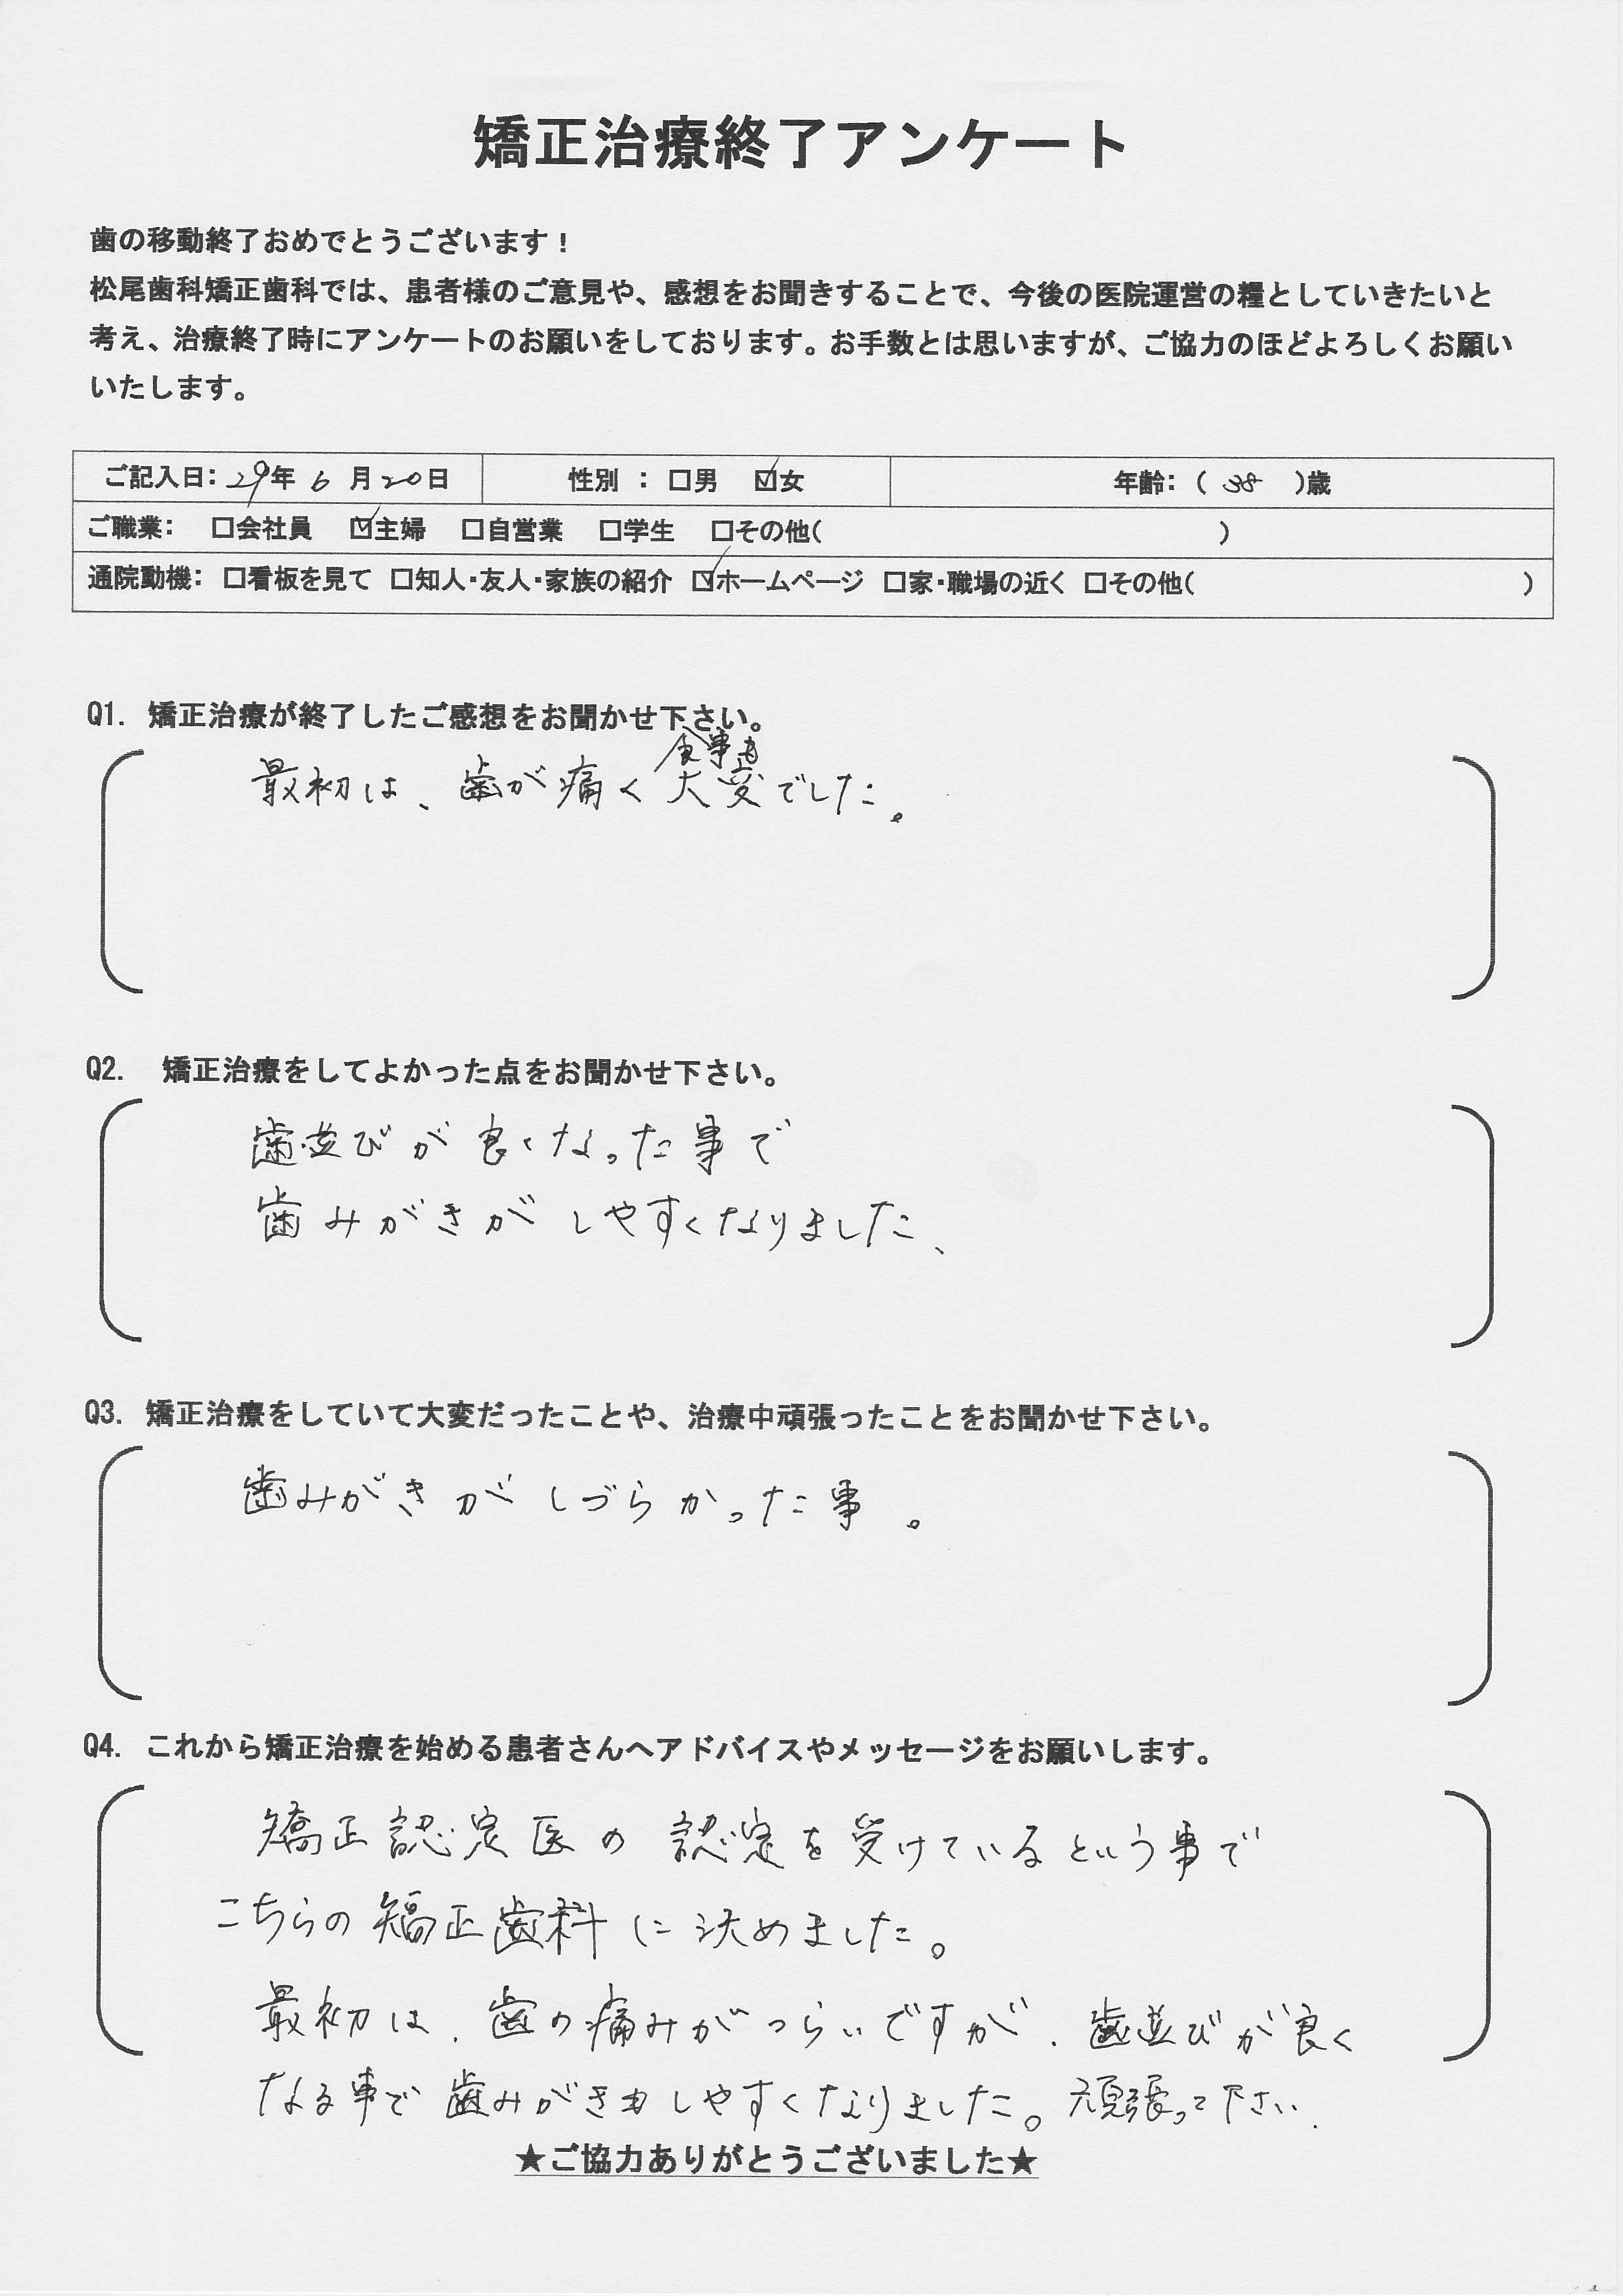 矯正治療終了アンケート
歯の移動終了おめでとうございます！
松尾歯科矯正歯科では、患者様のご意見や、感想をお聞きすることで、今後の医院運営の糧としていきたいと
考え、治療終了時にアンケートのお願いをしております。お手数とは思いますが、ご協力のほどよろしくお願い
いたします。
ご記入日：29年 6 月20日 性別 ： □男 ☑女 年齢：（ 38 ）歳
ご職業： □会社員 ☑主婦 □自営業 □学生 □その他（ ）
通院動機： □看板を見て □知人・友人・家族の紹介 ☑ホームページ □家・職場の近く □その他（ ）
Q1. 矯正治療が終了したご感想をお聞かせ下さい。
食事も
最初は、歯が痛く大変でした。
Q2. 矯正治療をしてよかった点をお聞かせ下さい。
歯並びが良くなった事で
歯みがきがしやすくなりました、
Q3. 矯正治療をしていて大変だったことや、治療中頑張ったことをお聞かせ下さい。
歯みがきがしづらかった事。
Q4. これから矯正治療を始める患者さんへアドバイスやメッセージをお願いします。
矯正認定医の認定を受けているという事で
こちらの矯正歯科に決めました。
最初は、歯の痛みがつらいですが、歯並びが良く
なる事で歯みがきもしやすくなりました。頑張って下さい。
★ご協力ありがとうございました★